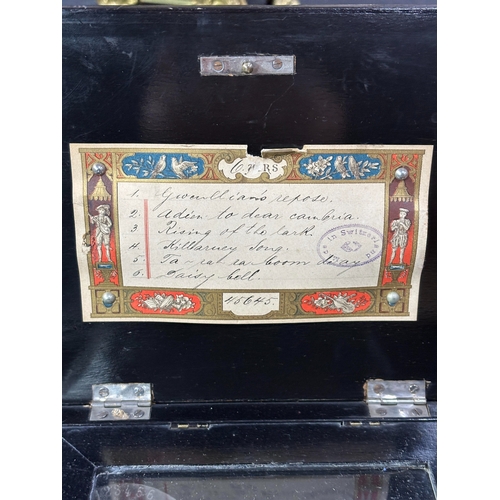 6 AIRS
1. Gwenllian's repose.
2. Adieu to dear cambria.
3 Rising of the lark.
4. Killarney song.
5. Ta-ra-ra boom deay
6. Daisy bell.
in Switzerland
45645.